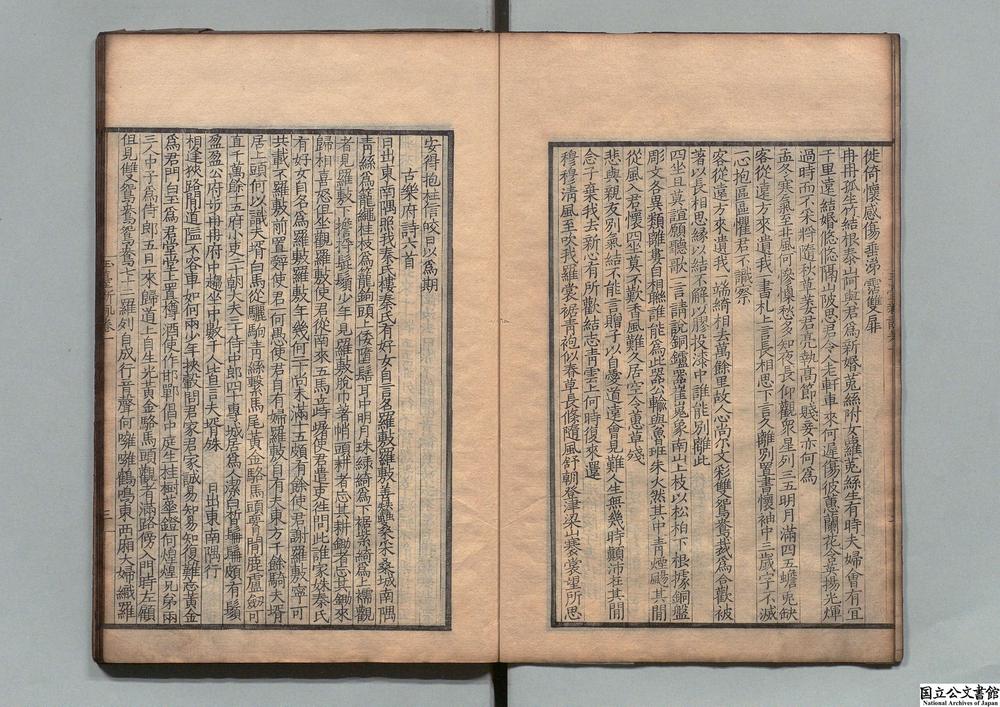 徙倚懷感傷垂涕霑雙扉
冉冉孤生竹結根泰山阿與君爲新婚菟絲附女蘿菟絲生有時夫婦會有宜
千里遠結婚悠悠隔山陂思君令人老軒車來何遲傷彼蕙蘭花含英揚光輝
過時而不采將隨秋草萎君亮執高節賤妾亦何爲
孟冬寒氣至北風何慘慄愁多知夜長仰觀衆星列三五明月滿四五蟾兔缺
客從遠方來遺我一書札上言長相思下言久離別置書懷袖中三歲字不滅
一心抱區區懼君不識察
客從遠方來遺我一端綺相去萬餘里故人心尚尔文彩雙鴛鴦裁爲合歡被
著以長相思緣以結不解以膠投漆中誰能別離此
四坐且莫諠願聽歌一言請說銅鑪器崔嵬象南山上枝以松柏下根據銅盤
彫文各異類離婁自相聯誰能爲此器公輸與魯班朱火然其中青煙颺其間
從風入君懷四坐莫不歎香風難久居空令蕙草殘
悲與親友別氣結不能言贈子以自愛道遠會見難人生無幾時顛沛在其間
念子棄我去新心有所歡結志青雲上何時復來還
穆穆清風至吹我羅裳裾青袍似春草長條隨風舒朝登津梁山褰裳望所思
安得抱柱信皎日以爲期
古樂府詩六首
日出東南隅照我秦氏樓秦氏有好女自言名羅敷羅敷善蠶桑采桑城南隅
青絲爲籠繩桂枝爲籠鉤頭上倭墮髻耳中明月珠綠綺爲下裾紫綺爲上襦觀
者見羅敷下擔捋髭鬚少年見羅敷脫巾著帩頭耕者忘其耕鋤者忘其鋤來
歸相喜怒但坐觀羅敷使君從南來五馬立峙躇使君遣吏往問此誰家姝秦氏
有好女自名爲羅敷羅敷年幾何二十尚未滿十五頗有餘使君謝羅敷寧可
共載不羅敷前置辭使君一何愚使君自有婦羅敷自有夫東方千餘騎夫壻
居上頭何以識夫壻白馬從驪駒青絲繫馬尾黃金絡馬頭腰間鹿盧劒可
直千萬餘十五府小吏二十朝大夫三十侍中郎四十專城居爲人潔白皙鬑鬑頗有鬚
盈盈公府步冉冉府中趨坐中數千人皆言夫壻殊 日出東南隅行
相逢狹路間道隘不容車如何兩少年挾轂問君家君家誠易知易知復難忘黃金
爲君門白玉爲君堂堂上置樽酒使作邯鄲倡中庭生桂樹華鐙何煌煌兄弟兩
三人中子爲侍郎五日一來歸道上自生光黃金絡馬頭觀者滿路傍入門時左顧
但見雙鴛鴦鴛鴦七十二羅列自成行音聲何噰噰鶴鳴東西廂大婦織羅
三
国立公文書館
National Archives of Japan